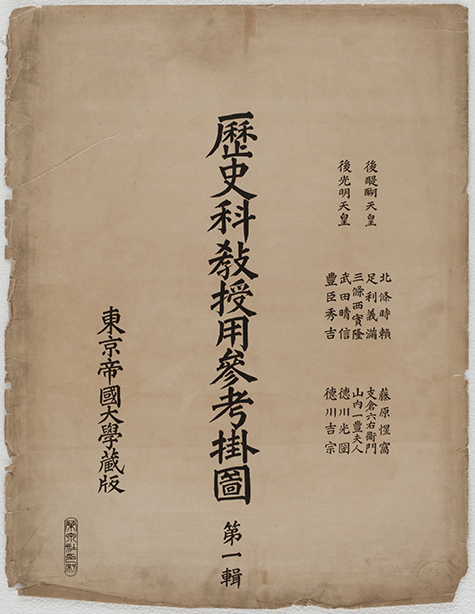 後醍醐天皇
後光明天皇
北條時賴
足利義滿
三條西實隆
武田晴信
豐臣秀吉
藤原惺窩
支倉六右衞門
山內一豐夫人
德川光圀
德川吉宗
歷史科敎授用參考掛圖 第一輯
東京帝國大學藏版